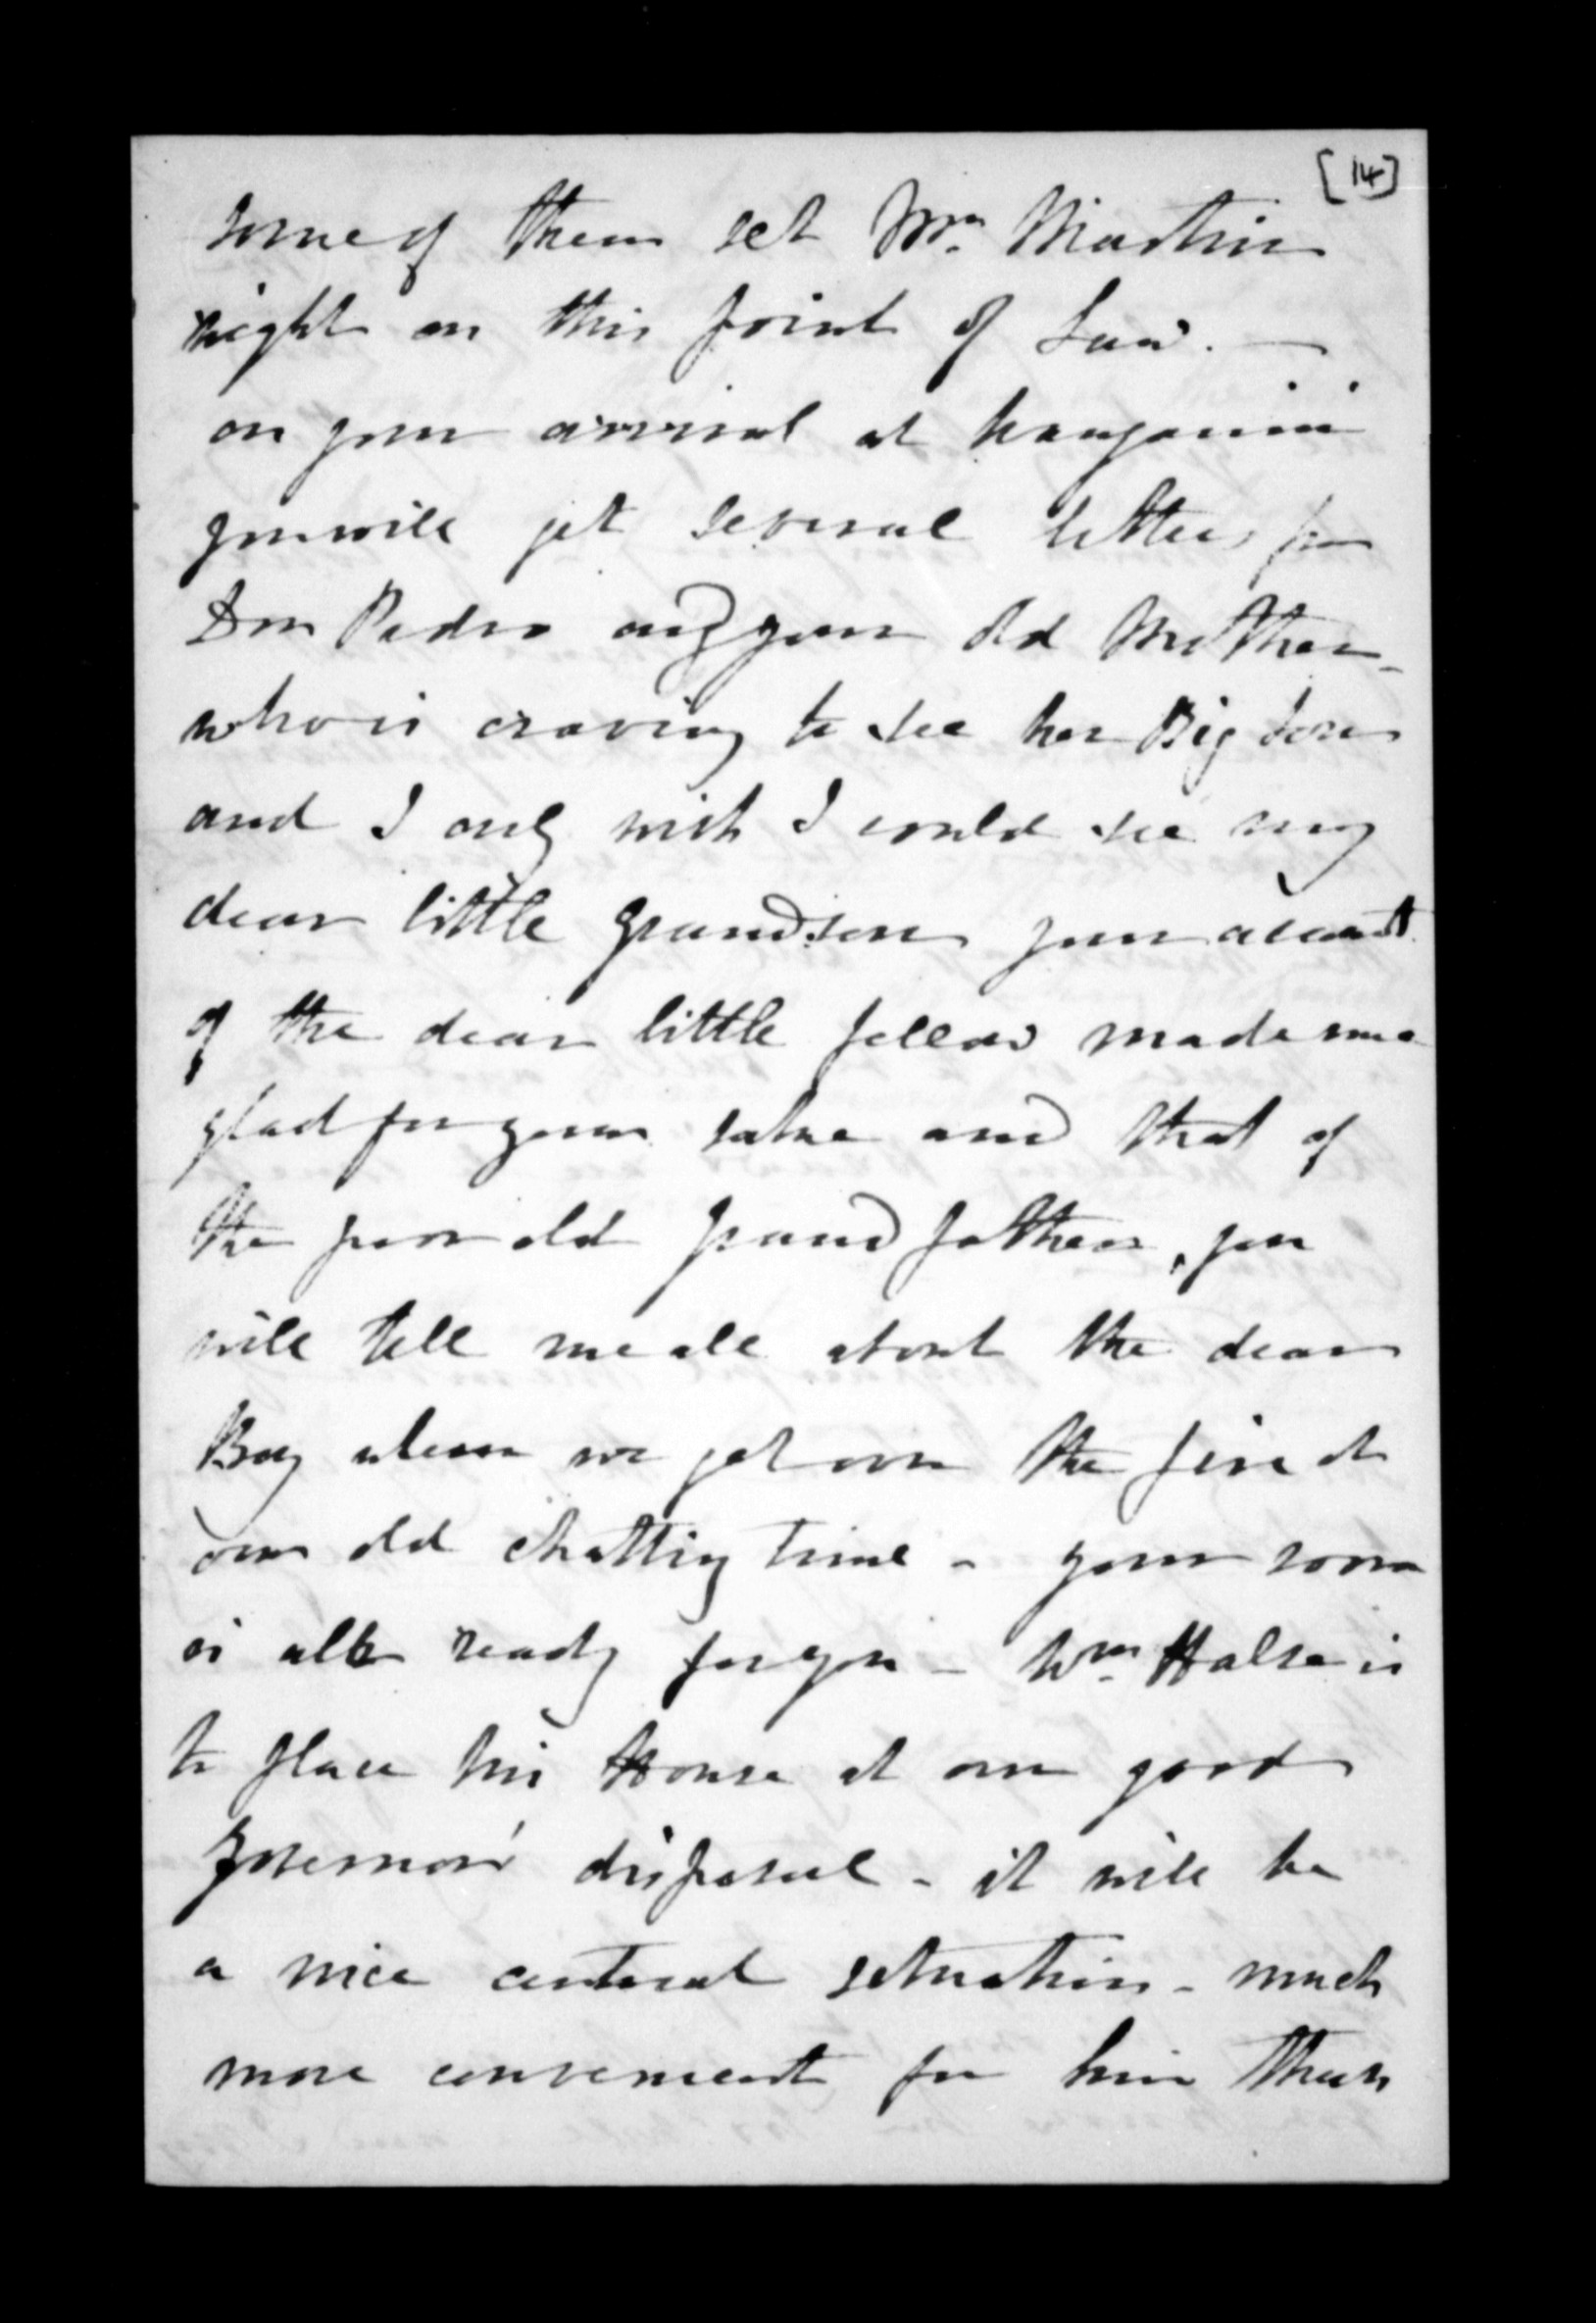 [14]
some of them set Wm. Martin
right on this point of Law. —
on your arrival at Wanganui
you will get several letters from
Don Pedro and your old Mother -
who is craving to see her Big Son
and I only wish I could see my
dear little grandson your account
of the dear little fellow made me
glad for your sake and that of
the poor old Grandfather, you
will tell me all about the dear
Boy when we get over the fire at
our old chatting time - your room
is all ready for you - Wm. Halse is
to place his House at our good
Governor's disposal - it will be
a nice central situation - much
more convenient for him than